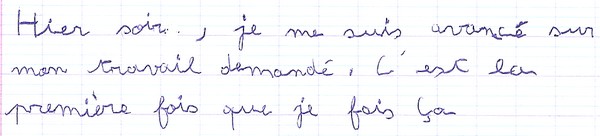 Hier soir., je me suis avancé sur
mon travail demandé. C'est la
première fois que je fais ça